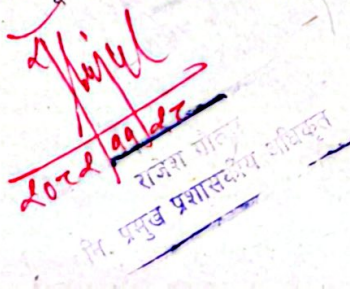 २०८२।११।२८
राजेश गौतम
नि. प्रमुख प्रशासकीय अधिकृत